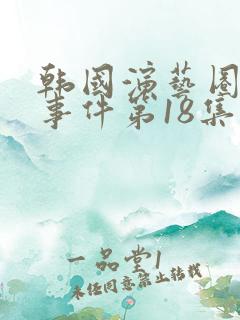 韩国演艺圈
事件第18集
一品堂1
未经同意禁止转载